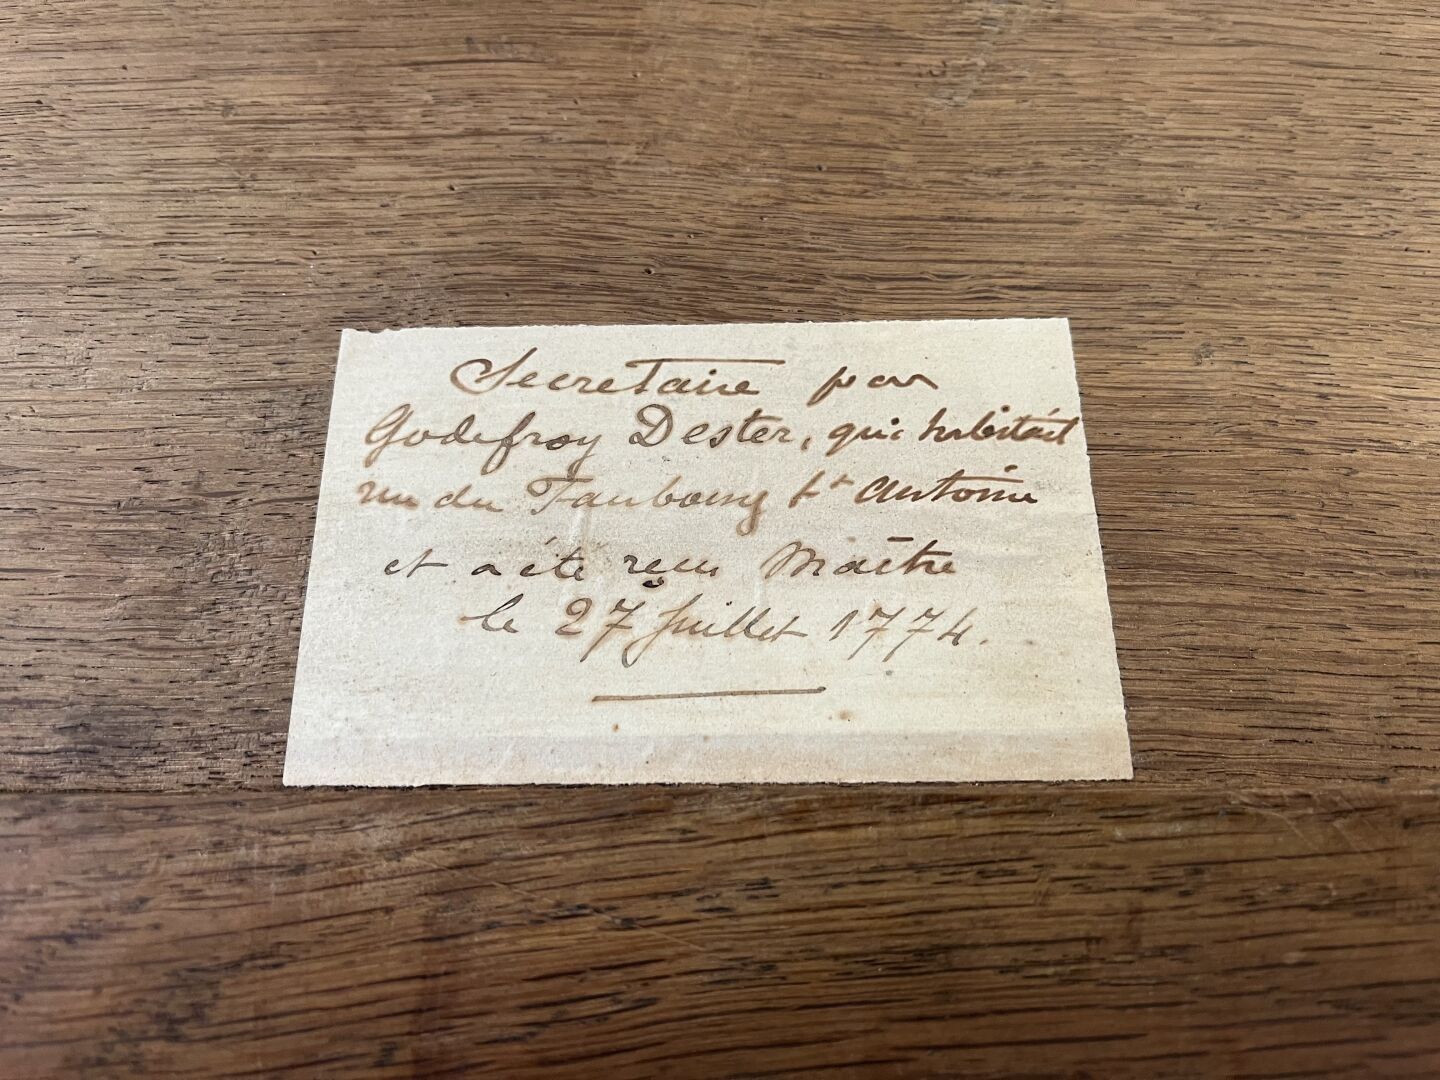 Secretaire par
Godefroy Dester, qui habitait
rue du Faubourg St Antoine
et a été reçu Maître
le 27 Juillet 1774.